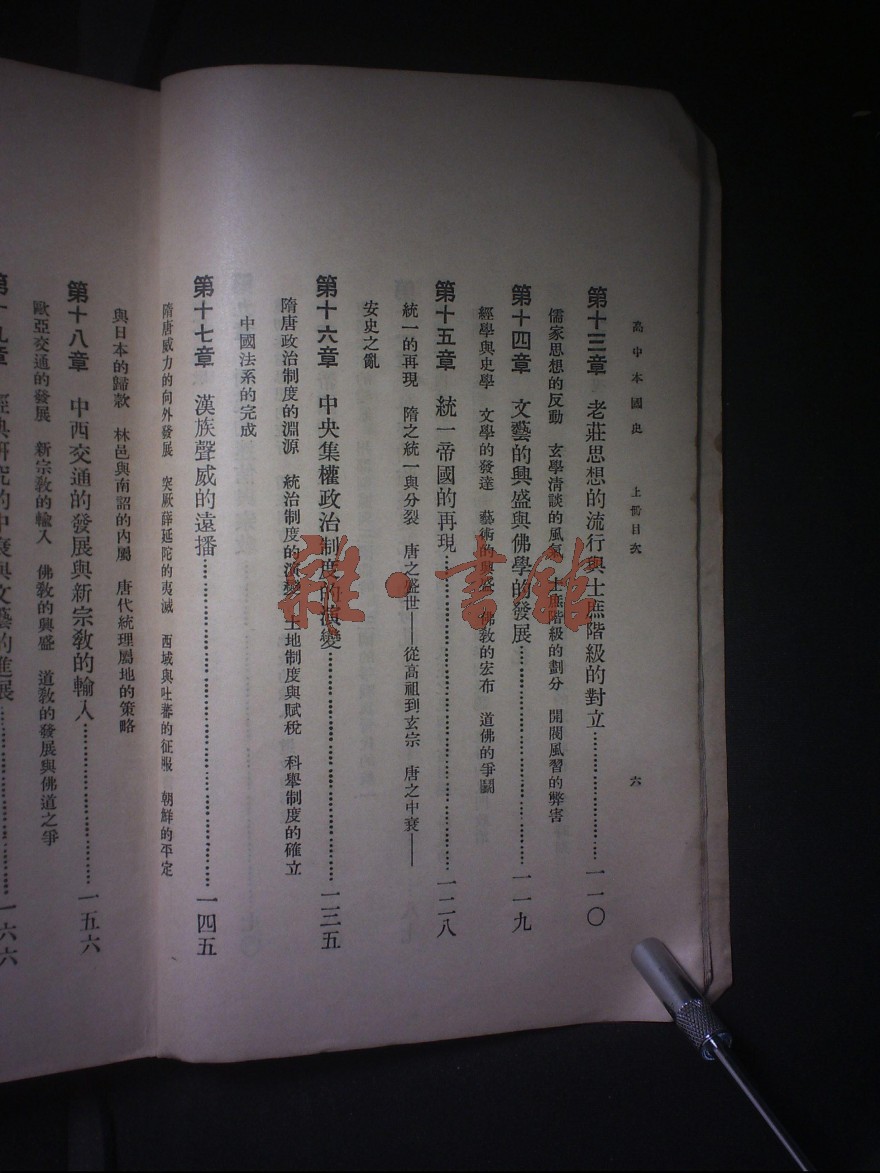 高中本國史 上冊目次 六
第十三章 老莊思想的流行與士庶階級的對立……一一〇
儒家思想的反動 玄學清談的風氣 士庶階級的劃分 閥閱風習的弊害
第十四章 文藝的興盛與佛學的發展……一一九
經學與史學 文學的發達 藝術的興盛 佛教的宏布 道佛的爭鬭
第十五章 統一帝國的再現……一二八
統一的再現 隋之統一與分裂 唐之盛世——從高祖到玄宗 唐之中衰——
安史之亂
第十六章 中央集權政治制度的演變……一三五
隋唐政治制度的淵源 統治制度的演變 土地制度與賦稅 科舉制度的確立
中國法系的完成
第十七章 漢族聲威的遠播……一四五
隋唐威力的向外發展 突厥薛延陀的夷滅 西域與吐蕃的征服 朝鮮的平定
與日本的歸欵 林邑與南詔的內屬 唐代統理屬地的策略
第十八章 中西交通的發展與新宗教的輸入……一五六
歐亞交通的發展 新宗教的輸入 佛教的興盛 道教的發展與佛道之爭
第十九章 經典研究的中衰與文藝的進展……一六六
雜·書館